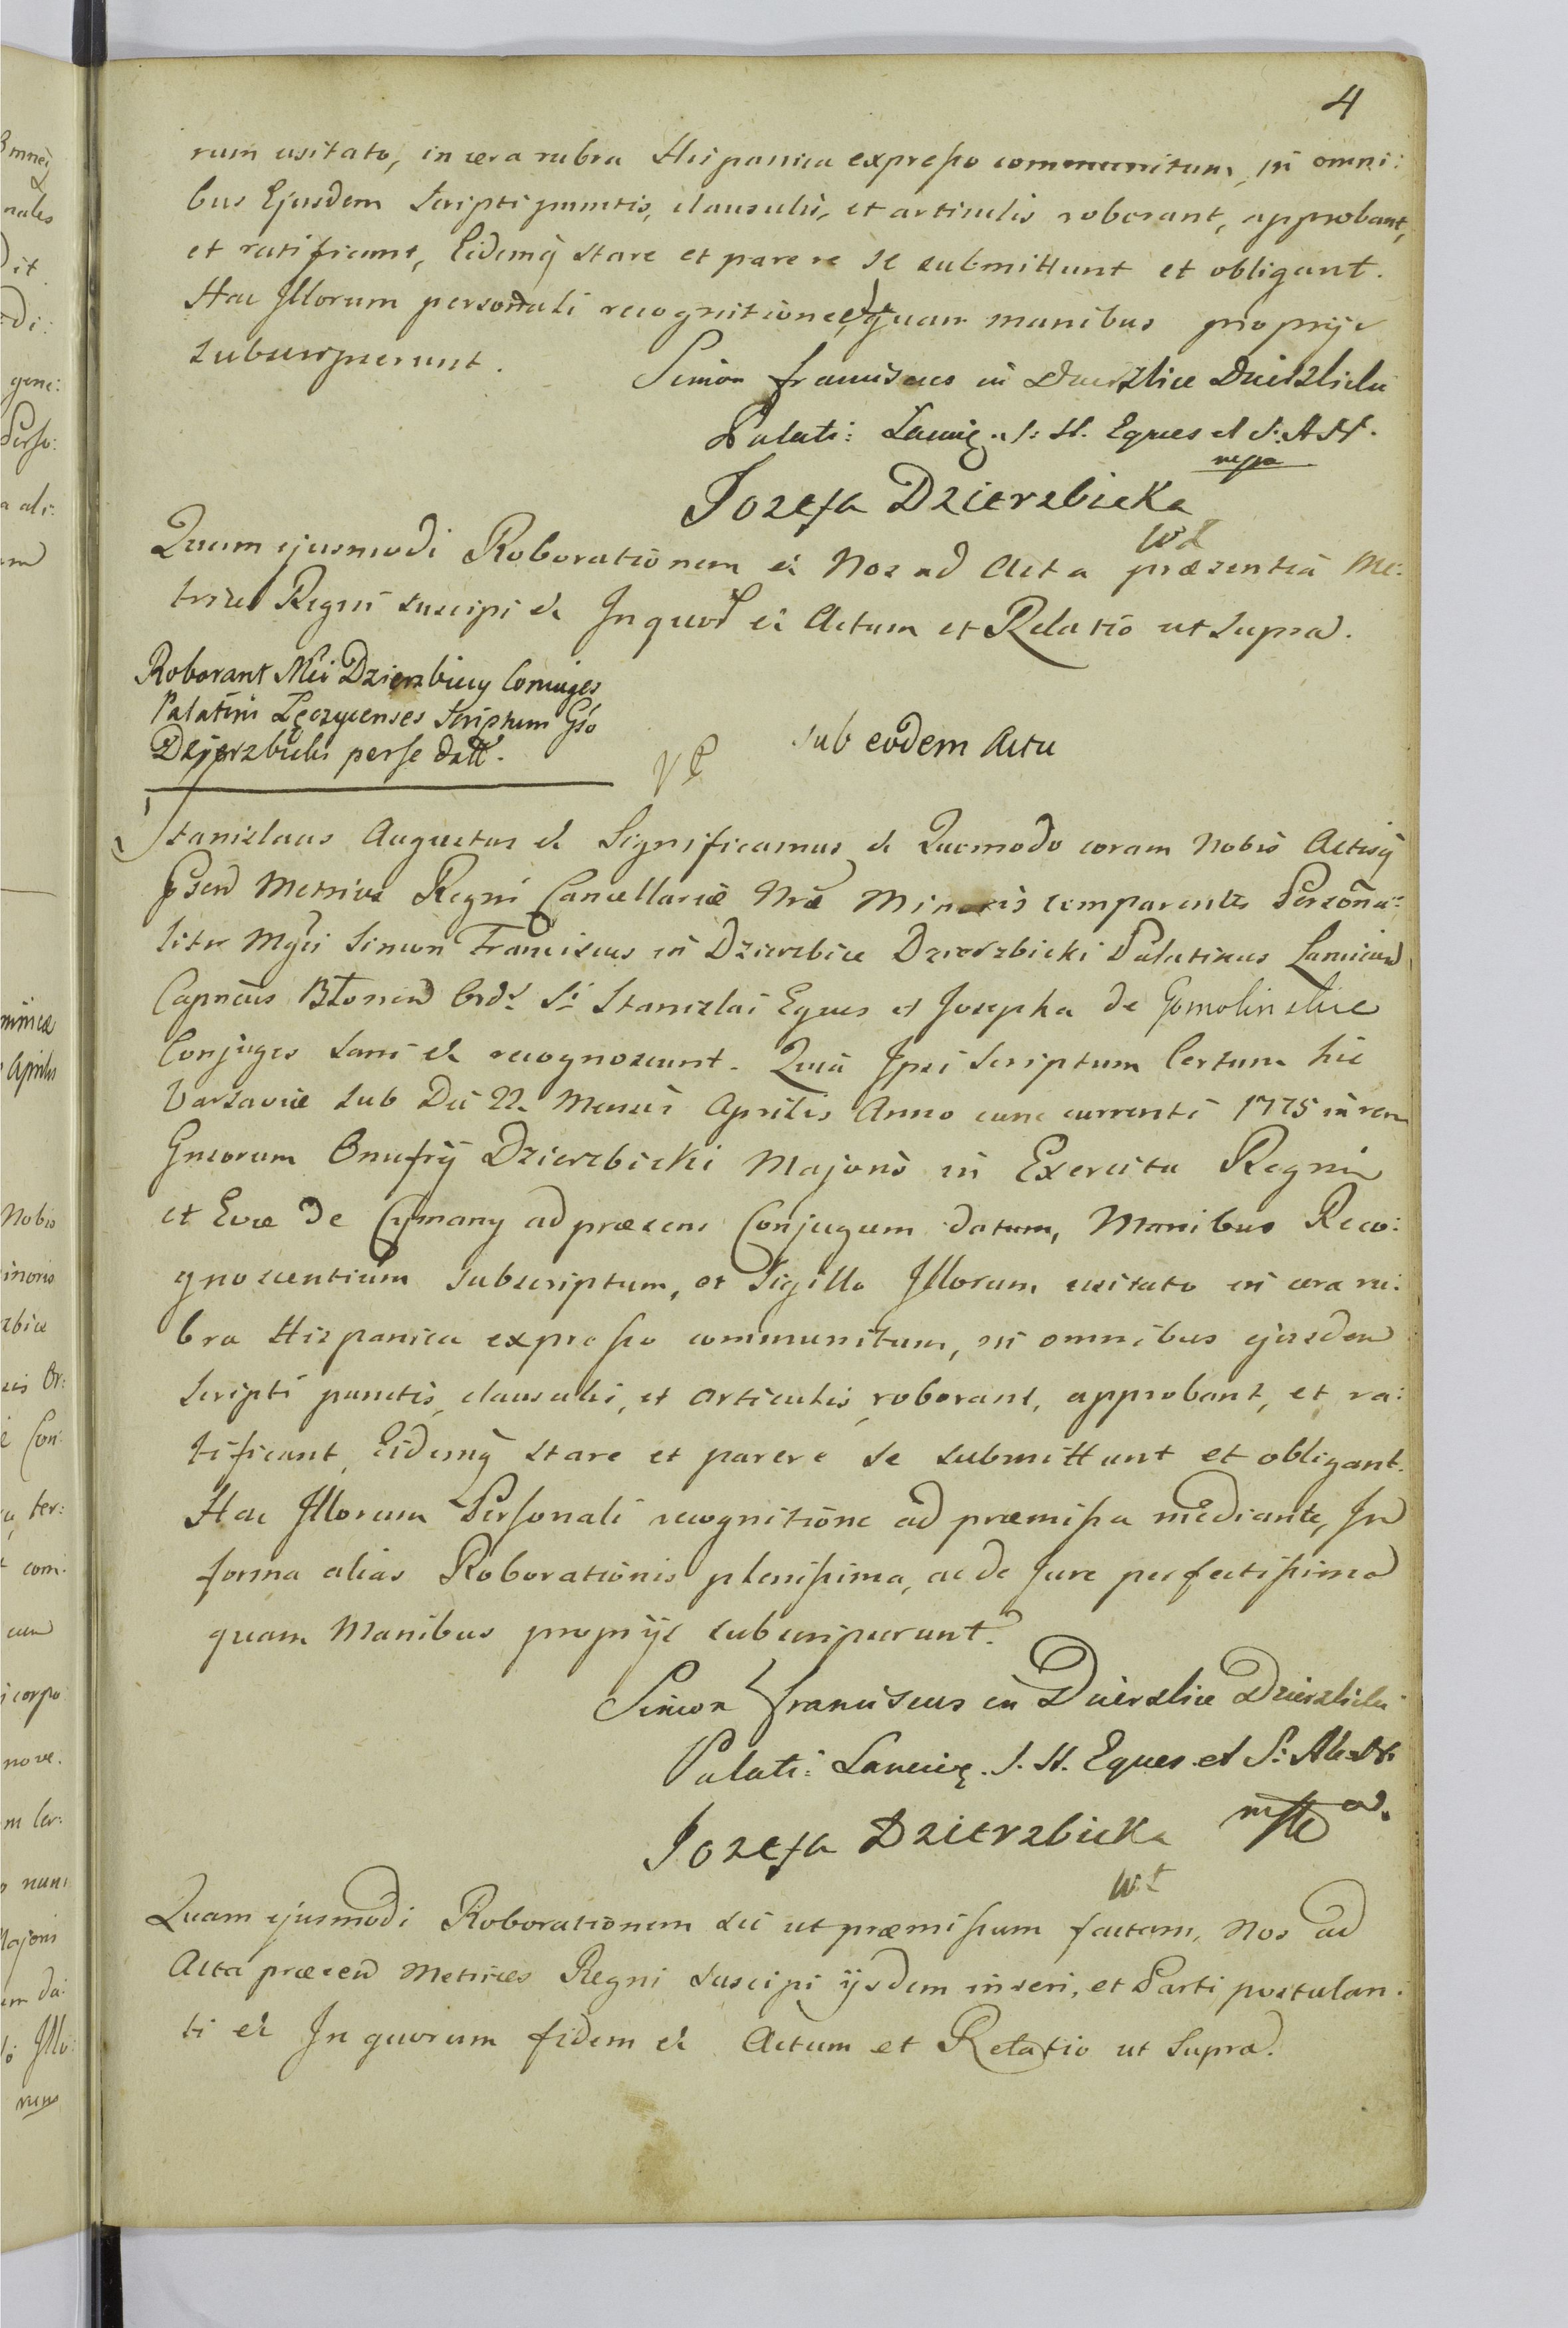 4
rum usitato, in cera rubra Hispanica expresso communitum, in omni:
bus Ejusdem Scripti punctis, clausulis, et articulis roborant, approbant,
et ratificant, Eidemq̀ stare et parere se submittunt et obligant.
Hac Illorum personali recognitione, et quam manibus proprijs
subscripserunt.
Simon Franciscus in Dzierzbice Dzierzbicki
Palati: Lancic. S: H. Eques et S: A H.
mpa
Jozefa Dzierzbicka
Quam ejusmodi Roborationem et Nos ad Acta præsentia Me:
trices Regni suscipi et In quor̃ et Actum et Relatio ut supra.
Roborant Mci Dzierzbiccy Coniuges
Palatini Łęczycenses Scriptum Gso
Dzierzbicki per se datt.
sub eodem Actu
Stanislaus Augustus et Significamus et Quomodo coram Nobis Actisq̀
Psen Metrices Regni Cancellariæ Nræ Minoris comparentes Persona:
liter Mgci Simon Franciscus in Dzierzbice Dzierzbicki Palatinus Lancicien
Capneus Błonen Ord: S: Stanislai Eques et Josepha de Gomolinskie
Conjuges sani et recognoscunt. Quia Ipsi Scriptum Certum hic
Varsaviæ sub Die 22. Mensis Aprilis Anno eunc currenti 1775 in rem
Gnsorum Onufrij Dzierzbicki Majoris in Exercitu Regni
et Evæ de Cymany ad præsens Conjugum datum, Manibus Reco:
gnoscentium subscriptum, et Sigillo Illorum usitato in cera ru:
bra Hispanica expresso communitum, in omnibus ejusdem
Scripti punctis, clausulis, et articulis roborant, approbant, et ra:
tificant, Eidemq̀ stare et parere se submittunt et obligant.
Hac Illorum Personali recognitione ad præmissa mediante, In
forma alias Roborationis plenissima, ac de Jure perfectissima
quam Manibus proprijs subscripserunt.
Simon Franciscus in Dzierzbice Dzierzbicki
Palati: Lancic. S. H. Eques et S:
Jozefa Dzierzbicka
Quam ejusmodi Roborationem sic ut præmissum factam, Nos ad
Acta præsen Metrices Regni suscipi ijsdem inseri, et Parti postulan:
ti et In quorum fidem et Actum et Relatio ut Supra.